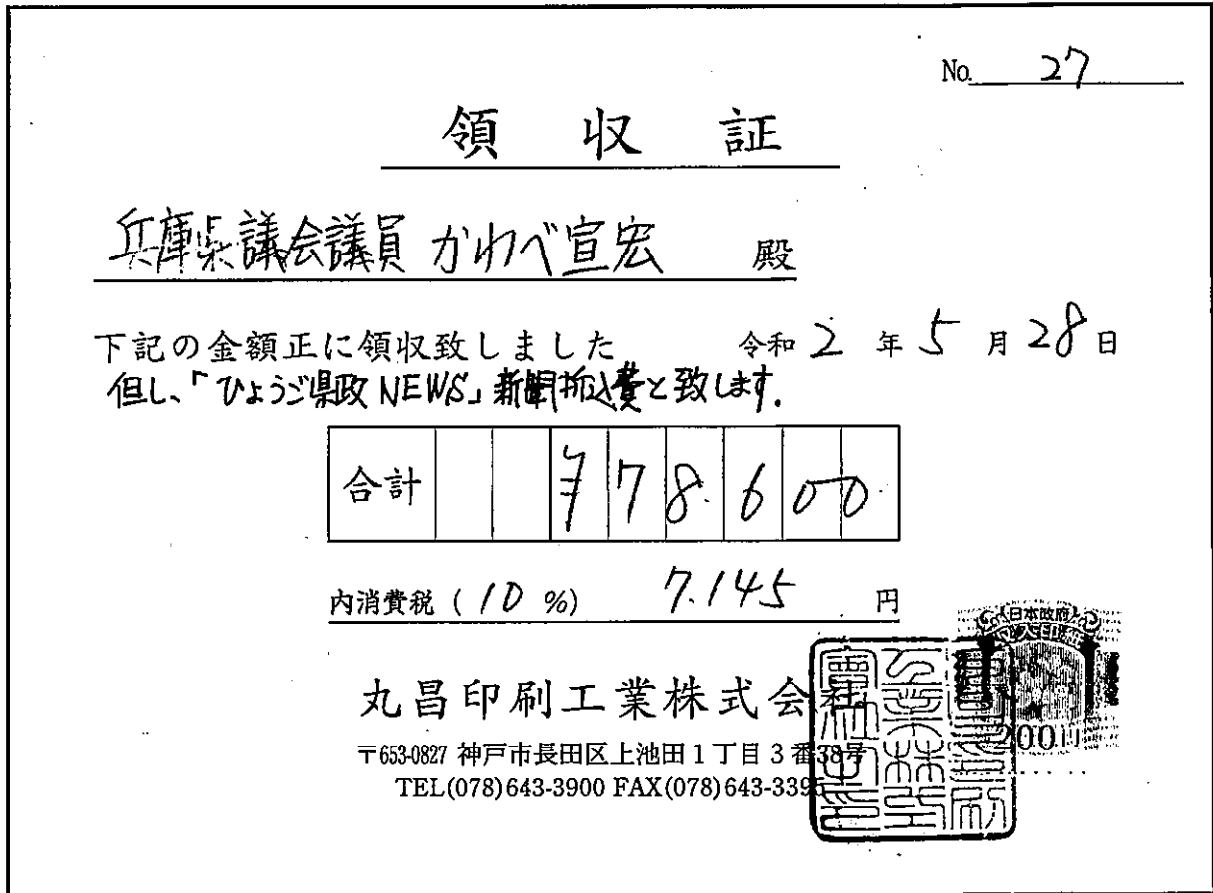 No. 27
領収証
兵庫県議会議員 かわべ宣宏 殿
下記の金額正に領収致しました 令和 2 年 5 月 28 日
但し、「ひょうご県政NEWS」新聞折込費と致します.
合計 ¥78600
内消費税 (10%) 7.145 円
丸昌印刷工業株式会社
〒653-0827 神戸市長田区上池田1丁目3番38号
TEL(078)643-3900 FAX(078)643-3395
日本政府
200円